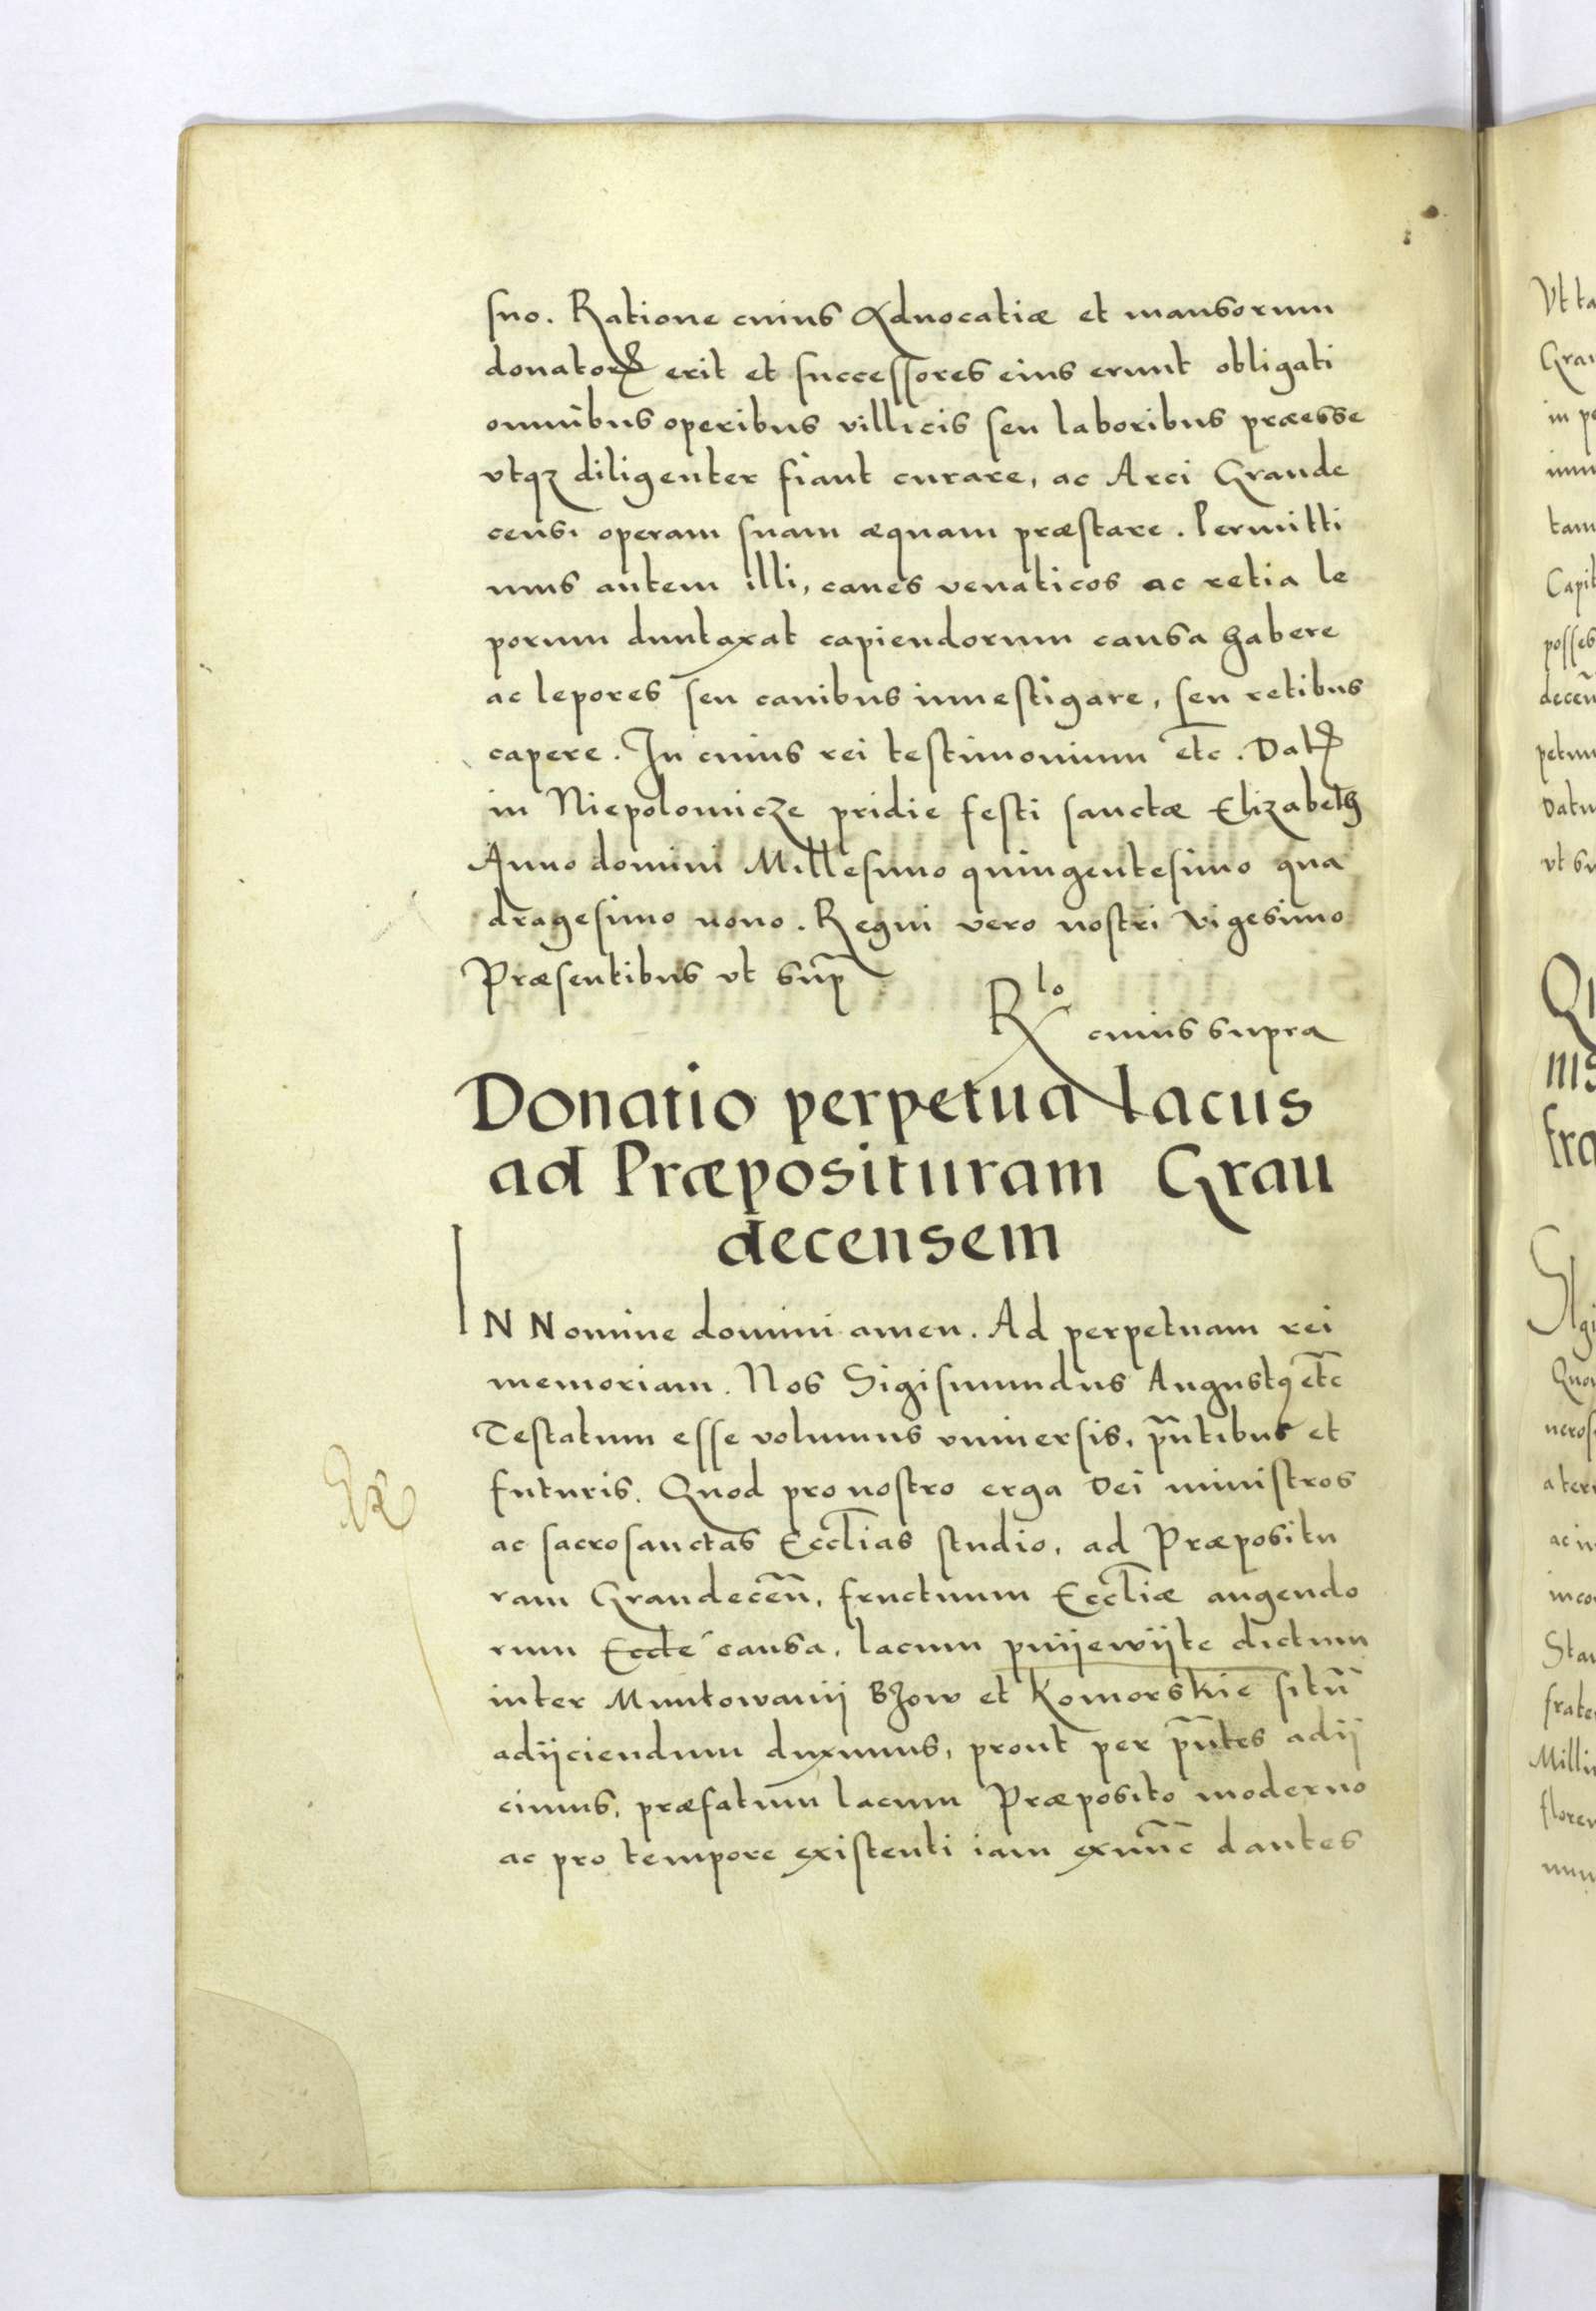 suo. Ratione cuius Aduocatiæ et mansorum
donatorꝝ erit et successores eius erunt obligati
omnibus operibus villicis seu laboribus præesse
vtqꝫ diligenter fiant curare, ac Arci Graude
censi operam suam æquam præstare. Permitti
mus autem illi, canes venaticos ac retia le
porum duntaxat capiendorum causa habere
ac lepores seu canibus inuestigare, seu retibus
capere. In cuius rei testimonium etc̄. Datꝭ
in Niepolomicze pridie festi sanctæ Elizabeth
Anno domini Millesimo quingentesimo qua
dragesimo nono. Regni vero nostri vigesimo
Præsentibus vt sup̄
Rlo
cuius supra
Donatio perpetua lacus
ad Præposituram Grau
decensem
IN Nomine domini amen. Ad perpetuam rei
memoriam. Nos Sigismundus Augustꝯ etc̄
Testatum esse volumus vniuersis, pn̄tibus et
futuris. Quod pro nostro erga Dei ministros
ac sacrosanctas Eccl̄ias studio, ad Præpositu
ram Graudecen̄, fructuum Eccl̄iæ augendo
rum Eccl̄e causa, lacum pnijewijte dictum
inter Muntowanij Bzow et Komorskie situ̅
adijciendum duximus, prout per pn̄tes adij
cimus, præfatum lacum Præposito moderno
ac pro tempore existenti iam exnunc dantes